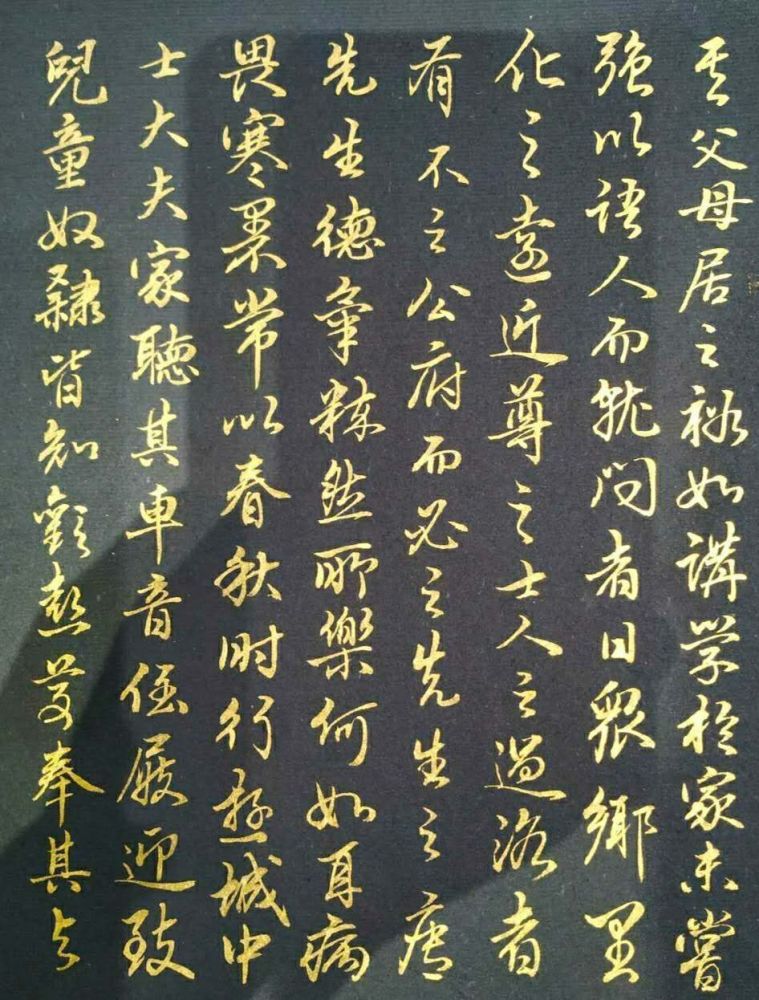 其父母居之裕如講學於家未嘗
強以語人而就問者日眾鄉里
化之遠近尊之士人之過洛者
有不之公府而必之先生之廬
先生德氣粹然所樂何如耳病
畏寒暑常以春秋時行遊城中
士大夫家聽其車音倒屣迎致
兒童奴隸皆知歡喜尊奉其與